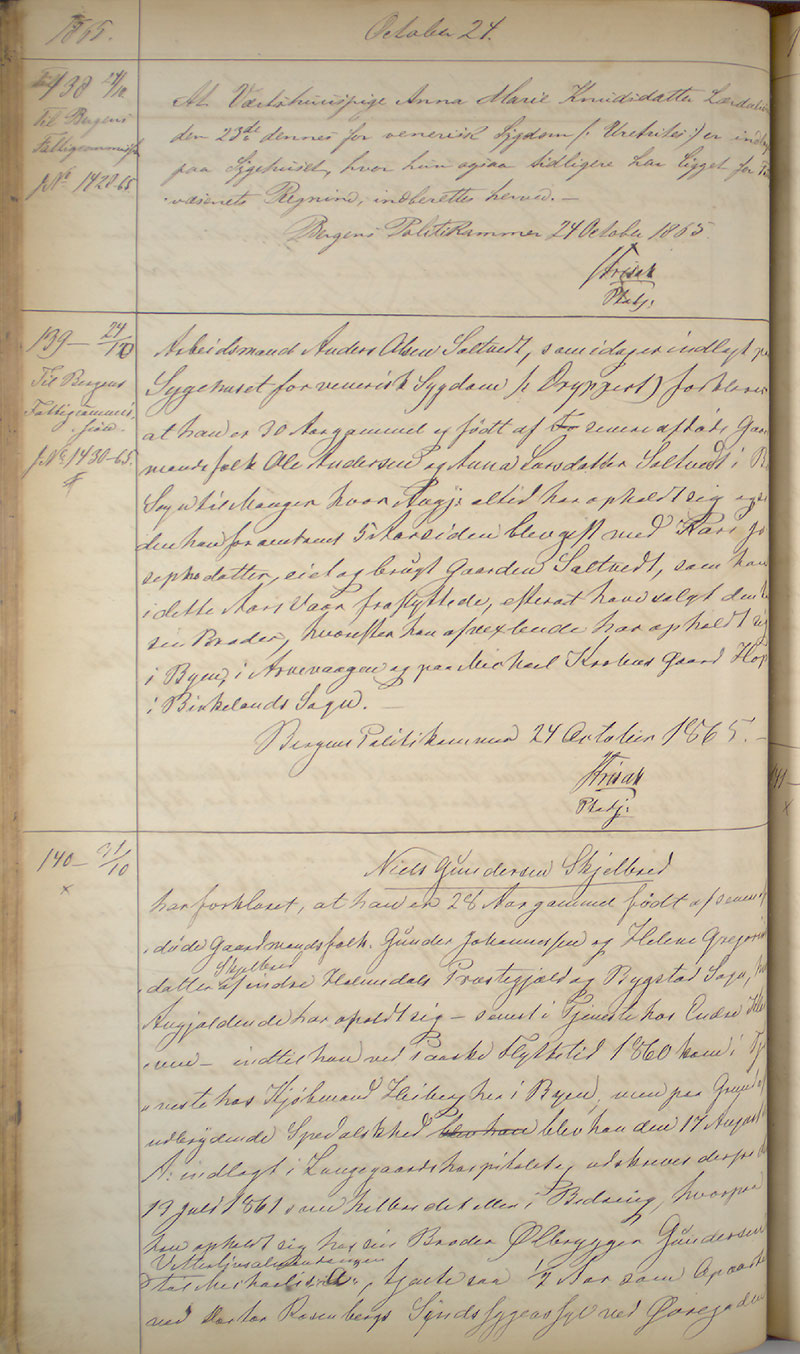 1865.
October 24.
138 24/10
Til Bergens
Fattigcommis
J No 1428-65.
At Værtshuuspige Anna Marie Knudsdatter Lærdal
den 23de dennes for venerisk Sygdom (: Urethritis :) er indlagt
paa Sygehuset, hvor hun ogsaa tidligere har ligget for
væsenets Regning, indberettes herved. —
Bergens Politikammer 24 October 1865.
139 — 24/10
Til Bergens
Fattigcommis-
sion.
J No 1430-65.
Arbeidsmand Anders Olsen Saltvedt, som idag er indlagt
Sygehuset for venerisk Sygdom (: Dryppert) forklarer
at han er 30 Aar gammel og født af senere afdøde Gaar
mandsfolk Ole Andersen og Anna Larsdatter Saltvedt i
Sogn til Manger hvor Angj: altid har opholdt sig og
den han for omtrent 5 Aar siden blev gift med Kari Jo
sephsdatter, eiet og brugt Gaarden Saltvedt, som han
i dette Aars Vaar fraflyttede, efterat have solgt den
sin Broder, hvorefter han afvexlende har opholdt sig
i Byen, i Arnevaagen og paa Michael Krohns Gaard Hop
i Birkelands Sogn. —
Bergens Politikammer 24 October 1865. —
140 — 31/10
x
Niels Gundersen Skjelbred
har forklaret, at han er 28 Aar gammel født af senere
døde Gaardmandsfolk Gunder Johannessen og Helene Gregorii
Skjelbred
datter af indre Holmedals Præstegjæld og Bygstad Sogn,
Angjældende har opholdt sig — senest i Tjeneste hos Endre
— indtil han ved Paaske Flyttetid 1860 kom i Tje
neste hos Kjøbmand Heiberg her i Byen, men paa Grund af
udbrydende Spedalskhed blev han blev han den 17 August
A: indlagt i Lungegaardshospitalet og udskreves derfra
19 Juli 1861 som helbredet eller i Bedring, hvorpaa
han opholdt sig hos sin Broder Ølbrygger Gundersen
Michaeli s. A., tjente saa 1/2 Aar som Opvarter
ved Doctor Rosenbergs Sindssygeasyl ved Øvregaden